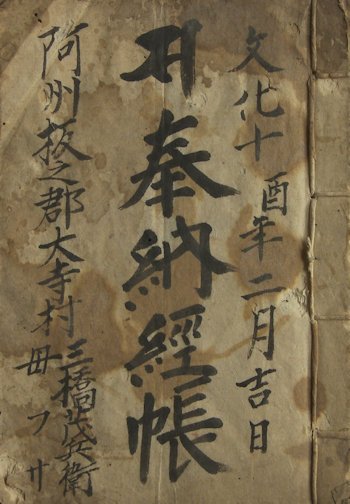 文化十酉年二月吉日
奉納經帳
阿州板之郡大寺村三橋茂兵衛
母フサ